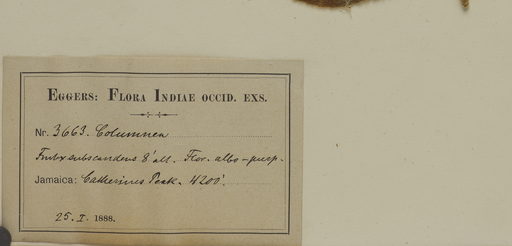 EGGERS: FLORA INDIAE OCCID. EXS.
Nr. 3663. Columnea
Frutex subscandens 8' alt. Flor. albo-purp.
Jamaica: Catherines Peak. 4200'.
25. I. 1888.